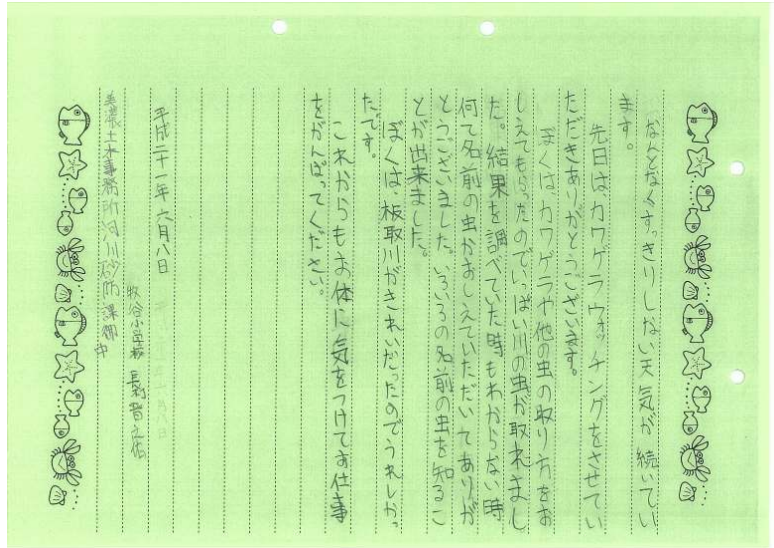 なんとなくすっきりしない天気が続いてい
ます。
先日は、カワゲラウォッチングをさせてい
ただきありがとうございます。
ぼくは、カワゲラや他の虫の取り方をお
しえてもらったのでいっぱい川の虫が取れまし
た。結果を調べていた時もわからない時
何て名前の虫かおしえていただいてありが
とうございました。いろいろの名前の虫を知るこ
とが出来ました。
ぼくは、板取川がきれいだったのでうれしかっ
たです。
これからもお体に気をつけてお仕事
をがんばってください。
平成二十一年六月八日
牧谷小学校
美濃土木事務所河川砂防課御中